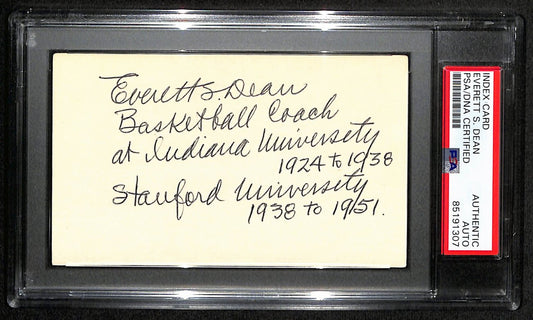 Everett S. Dean
Basketball Coach
at Indiana University
1924 to 1938
Stanford University
1938 to 1951.
INDEX CARD
EVERETT S. DEAN
PSA/DNA CERTIFIED
PSA
AUTHENTIC
AUTO
85191307